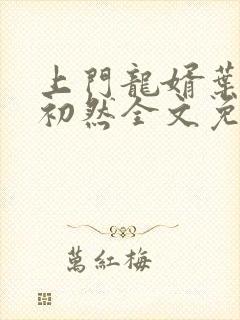 上門龍婿葉
初然全文免
萬紅梅